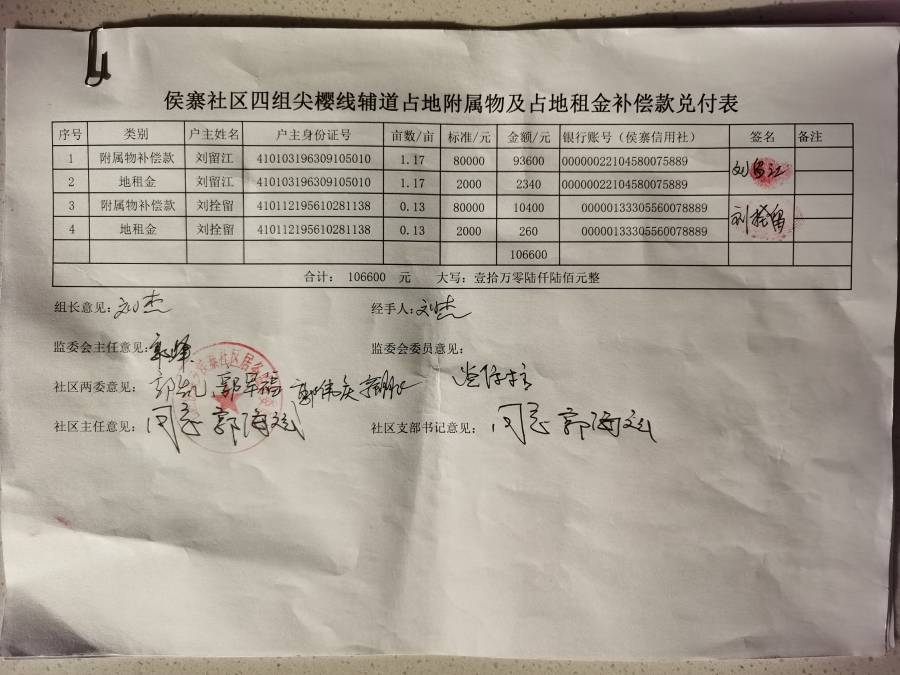 侯寨社区四组尖樱线辅道占地附属物及占地租金补偿款兑付表
序号 类别 户主姓名 户主身份证号 亩数/亩 标准/元 金额/元 银行账号（侯寨信用社） 签名 备注
1 附属物补偿款 刘留江 410103196309105010 1.17 80000 93600 00000022104580075889 刘留江
2 地租金 刘留江 410103196309105010 1.17 2000 2340 00000022104580075889
3 附属物补偿款 刘拴留 410112195610281138 0.13 80000 10400 00000133305560078889 刘拴留
4 地租金 刘拴留 410112195610281138 0.13 2000 260 00000133305560078889
106600
合计： 106600 元 大写：壹拾万零陆仟陆佰元整
组长意见：刘杰 经手人：刘杰
监委会主任意见： 监委会委员意见：
社区两委意见：
社区主任意见：同意 郭海斌 社区支部书记意见：同意 郭海斌